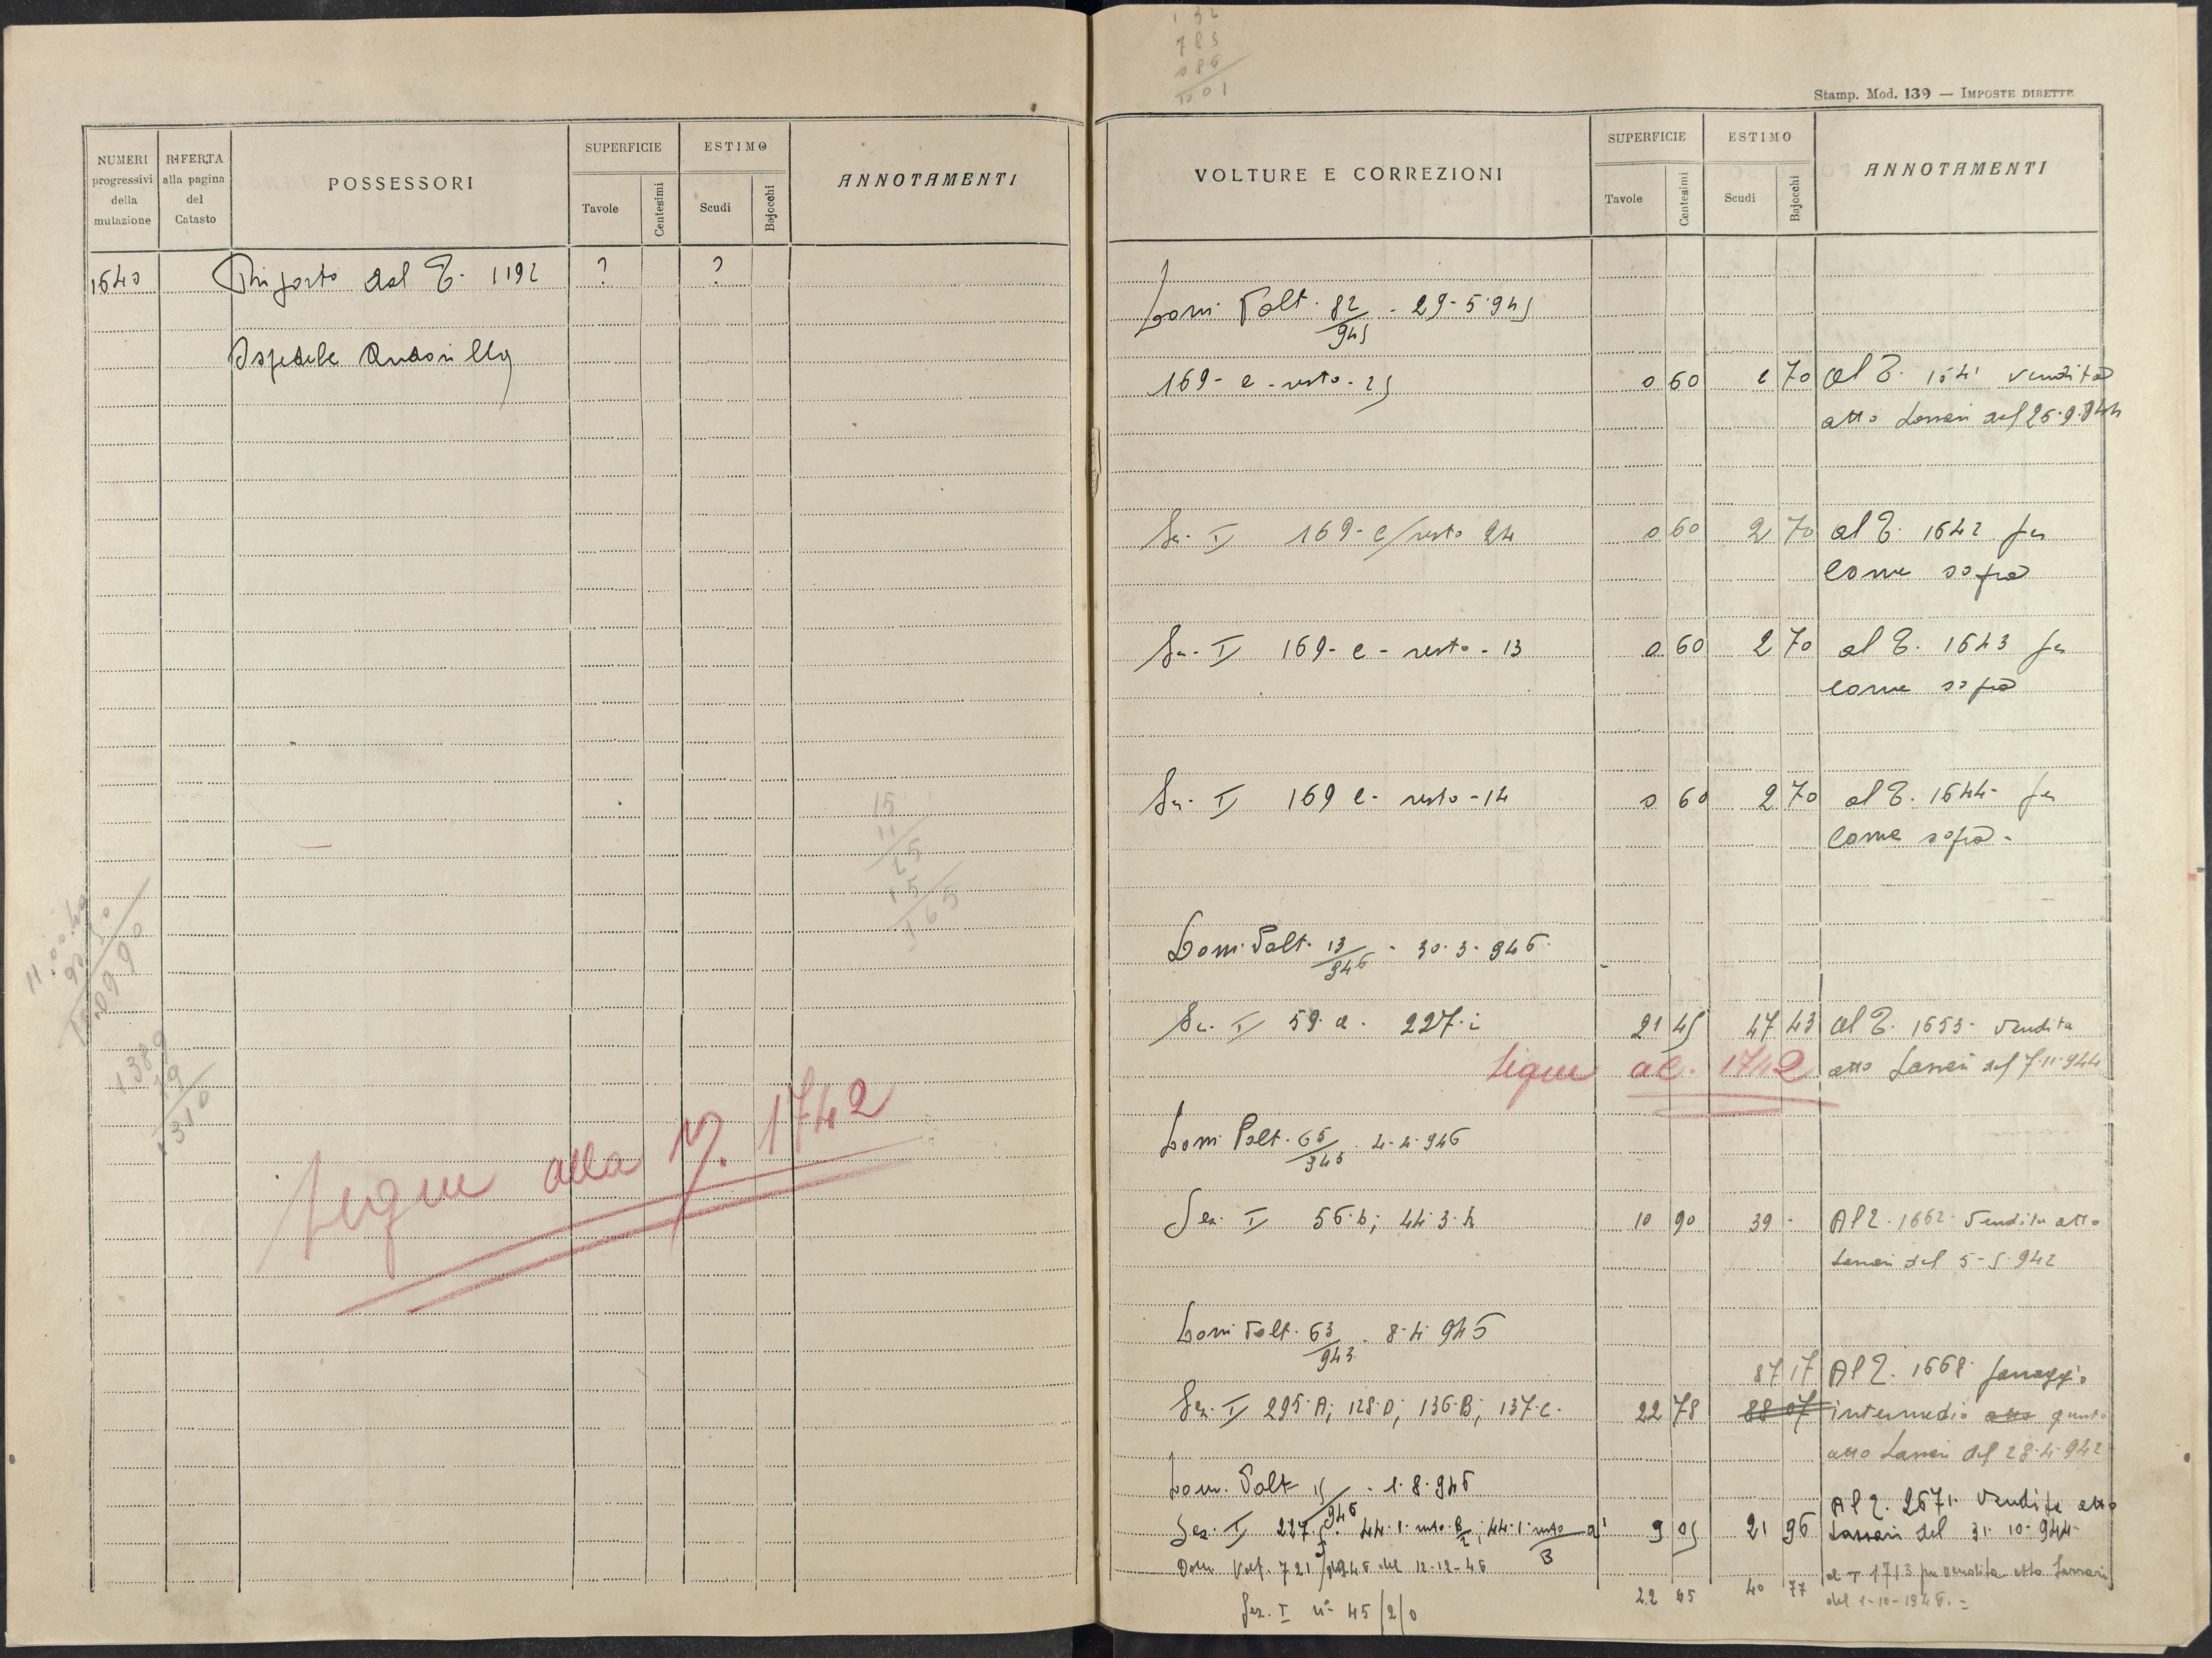 NUMERI progressivi della mutazione
RIFERTA alla pagina del Catasto
POSSESSORI
SUPERFICIE
Tavole
Centesimi
ESTIMO
Scudi
Bajocchi
ANNOTAMENTI
1640 Riporto dal T. 1192 ? ?
Ospedale
15
11
25
15
165
1389
19
1310
Segue alla 1742
132
783
086
1001
Stamp. Mod. 139 — IMPOSTE DIRETTE
VOLTURE E CORREZIONI
SUPERFICIE
Tavole
Centesimi
ESTIMO
Scudi
Bajocchi
ANNOTAMENTI
Dom. Volt. 82/945 - 29-5-945
169- e - resto - 25 0 60 2 70 Al T. 1641 vendita
atto Lassari del 26.9.944
Sez. I 169- e/resto 24 0 60 2 70 al T. 1642 per
come sopra
Sez. I 169- e - resto - 13 0 60 2 70 al T. 1643 per
come sopra
Sez. I 169 e - resto - 14 0 60 2 70 al T. 1644 - per
come sopra -
Dom. Volt. 13/946 - 30-3-946
Sez. I 59.a. 227.i 21 45 47 43 al T. 1653 - Vendita
Segue al. 1742 atto Lassari del 7-11-944
Dom. Volt. 65/946 4-4-946
Sez. I 56.b; 44.3.h 10 90 39 - Al T. 1662 - Vendita atto
Lassari del 5-5-942
Dom. Volt. 63/943 - 8-4-946
87 17 Al T. 1668 passaggio
Sez. I 295.A; 128.D; 136.B; 137.c. 22 78 88 07 intermedio atto
atto Lassari del 28-4-942
Dom. Volt. 15/946 - 1-8-946
Al T. 2671. Vendita atto
Sez. I 227. 44.1 resto 44.1 resto 9 05 21 96 Lassari del 31-10-944-
Dom. Volt. 721/1946 del 12-12-46 al T 1713 per vendita atto Lassari
Sez. I n° 45/2/0 22 65 40 77 del 1-10-1946. =